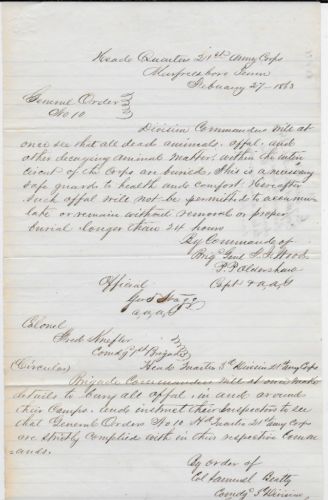 Head Quarters 21st Army Corps
Murfreesboro Tenn
February 27th 1863
General Order
No 10
Division Commanders will at
once see that all dead animals, offal, and
other decaying animal matter, within the entire
circuit of the Corps are buried. This is a necessary
safe guard to health and comfort. Hereafter
such offal will not be permitted to accumu
late or remain without removal or proper
burial longer than 24 hours
By Command of
Brig Genl T. J. Wood
P. P. Oldershaw
Capt & A.A.G
Official
A.A.A.G
Colonel
Fred Knefler
Comdg 1st Brigade
Circular
Head Quarters 3d Division 21st Army Corps
Brigade Commanders will at once make
details to bury all offal, in and around
their Camps, and instruct their Inspectors to see
that General Orders No 10 Hd Quarters 21st Army Corps
are strictly complied with in their respective Comm
ands.
By order of
Col Samuel Beatty
Comdg 3d Division